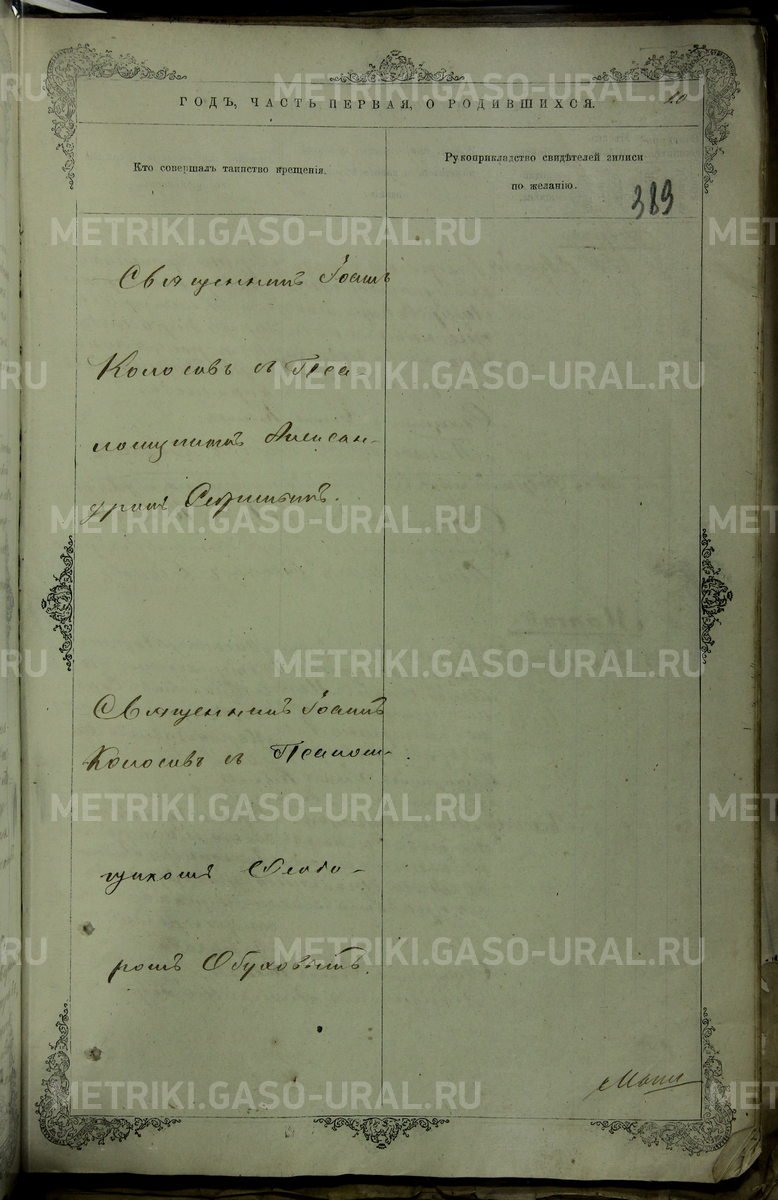 ГОДЪ, ЧАСТЬ ПЕРВАЯ, О РОДИВШИХСЯ.
10
Кто совершалъ таинство крещенія.
Рукоприкладство свидѣтелей записи
по желанію.
389
Священникъ Іоаннъ
Колосовъ съ Пса-
ломщикомъ Алексан-
дромъ
Священникъ Іоаннъ
Колосовъ съ Псаломщ-
щикомъ Ѳеодо-
ромъ Обуховымъ.
METRIKI.GASO-URAL.RU